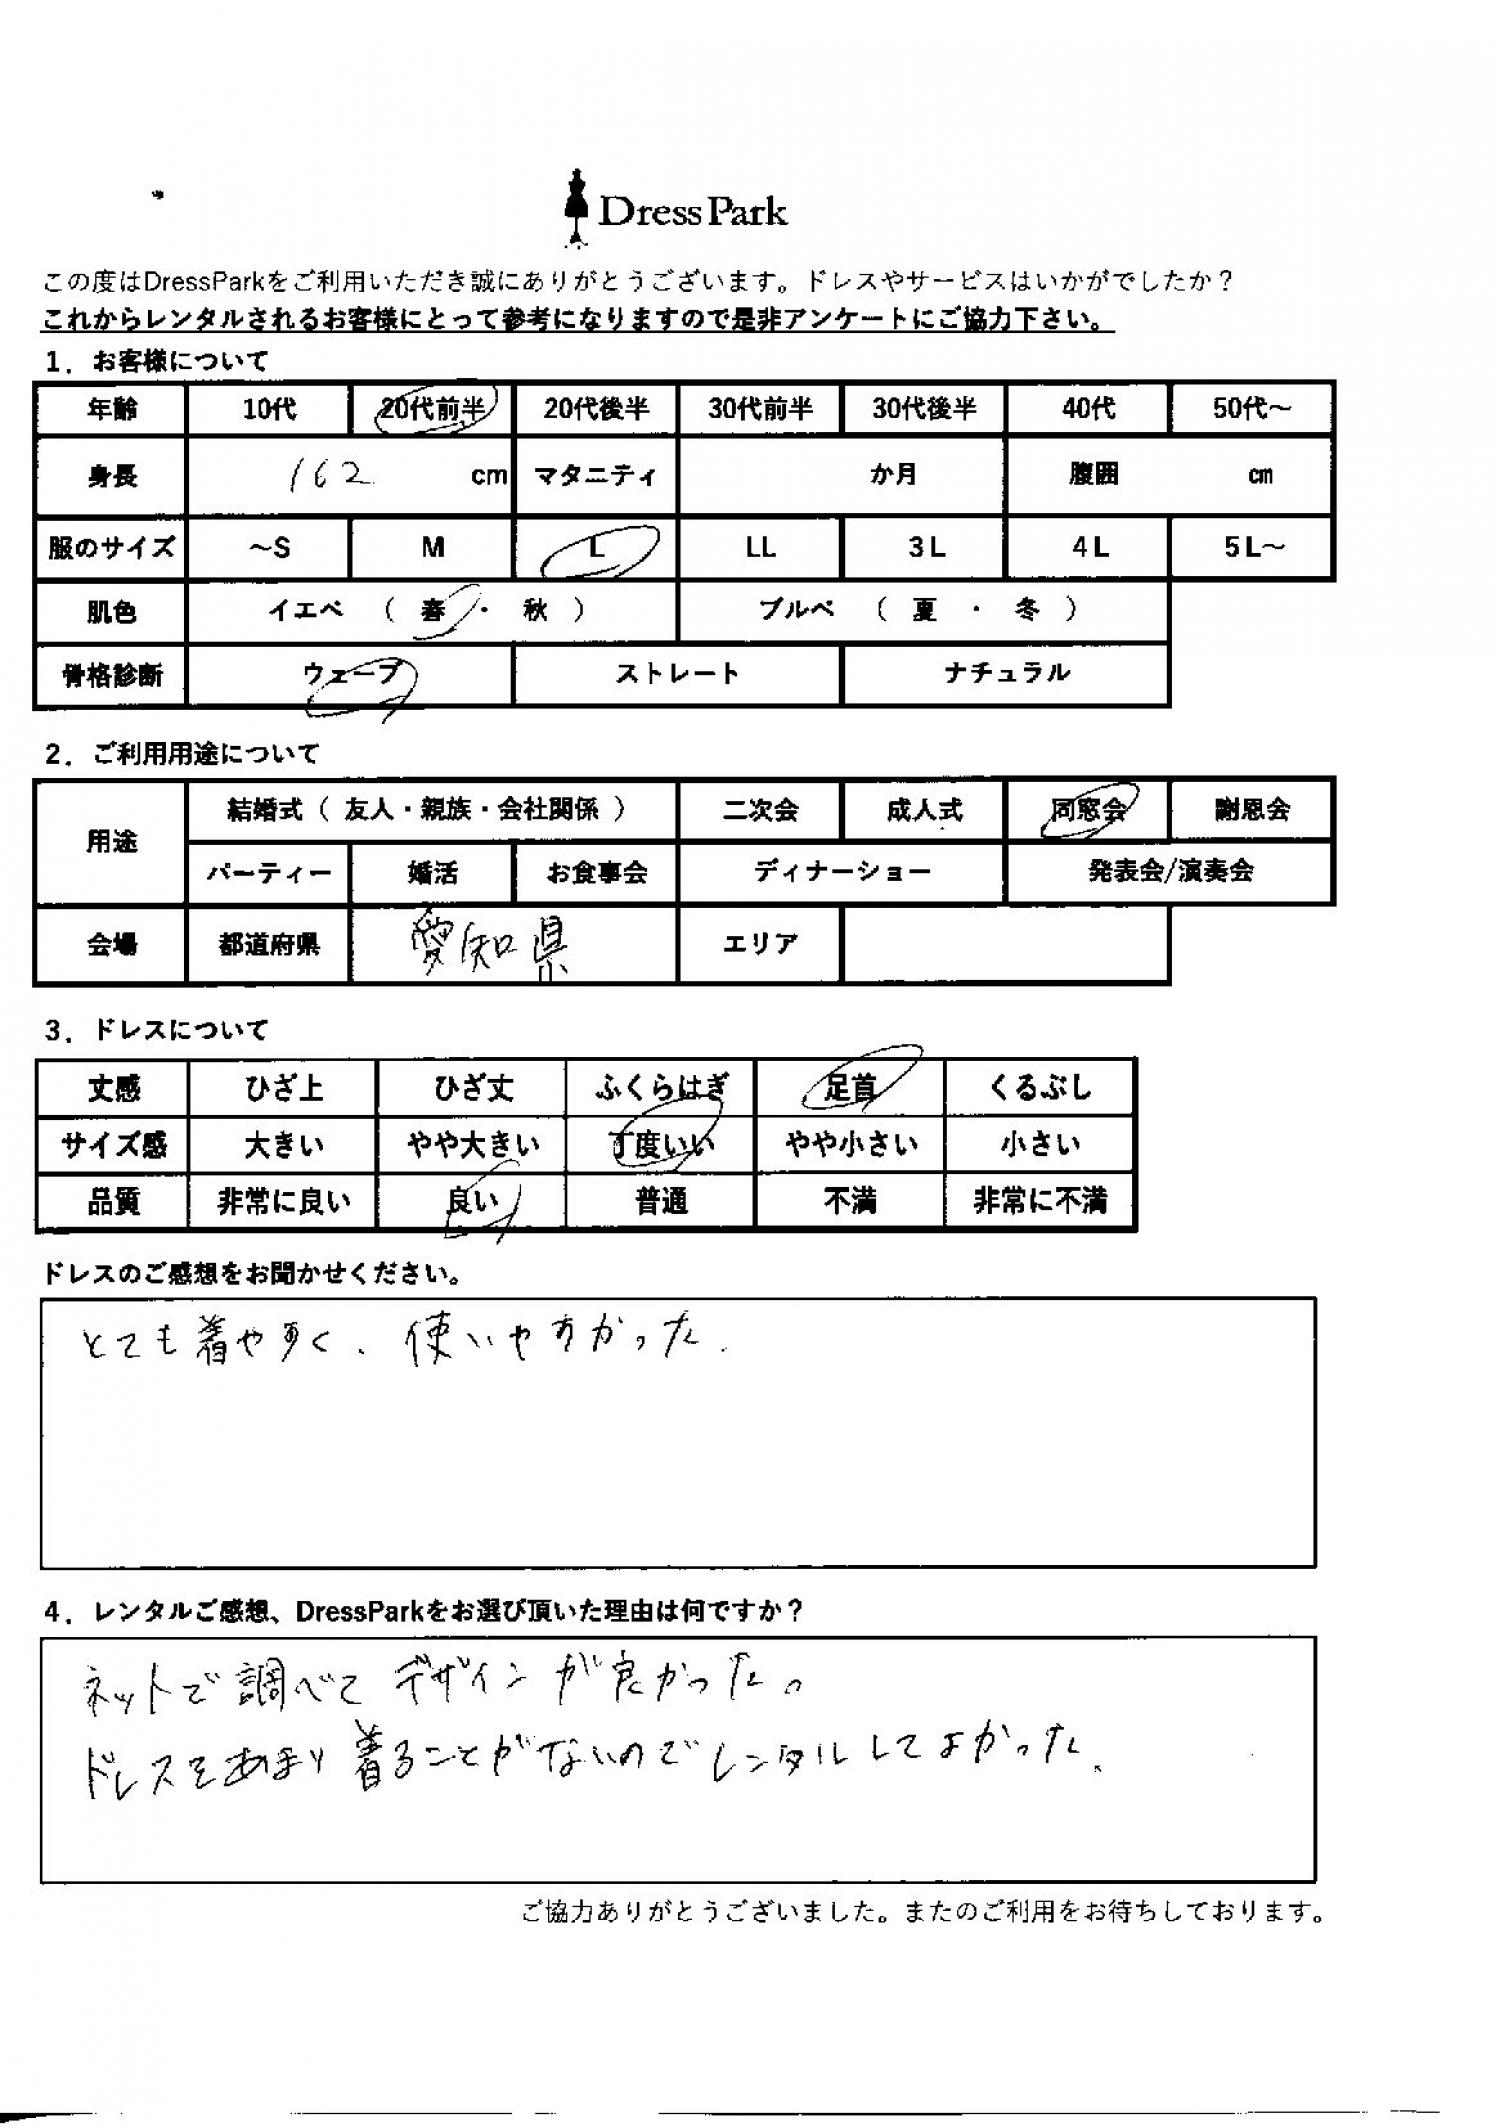 Dress Park
この度はDressParkをご利用いただき誠にありがとうございます。ドレスやサービスはいかがでしたか？
これからレンタルされるお客様にとって参考になりますので是非アンケートにご協力下さい。
1．お客様について
年齢 10代 20代前半 20代後半 30代前半 30代後半 40代 50代～
身長 162 cm マタニティ か月 腹囲 ㎝
服のサイズ ～S M L LL 3L 4L 5L～
肌色 イエベ （ 春 ・ 秋 ） ブルベ （ 夏 ・ 冬 ）
骨格診断 ウェーブ ストレート ナチュラル
2．ご利用用途について
用途 結婚式（ 友人・親族・会社関係 ） 二次会 成人式 同窓会 謝恩会
パーティー 婚活 お食事会 ディナーショー 発表会/演奏会
会場 都道府県 愛知県 エリア
3．ドレスについて
丈感 ひざ上 ひざ丈 ふくらはぎ 足首 くるぶし
サイズ感 大きい やや大きい 丁度いい やや小さい 小さい
品質 非常に良い 良い 普通 不満 非常に不満
ドレスのご感想をお聞かせください。
とても着やすく、使いやすかった.
4．レンタルご感想、DressParkをお選び頂いた理由は何ですか？
ネットで調べてデザインが良かった。
ドレスをあまり着ることがないのでレンタルしてよかった、
ご協力ありがとうございました。またのご利用をお待ちしております。